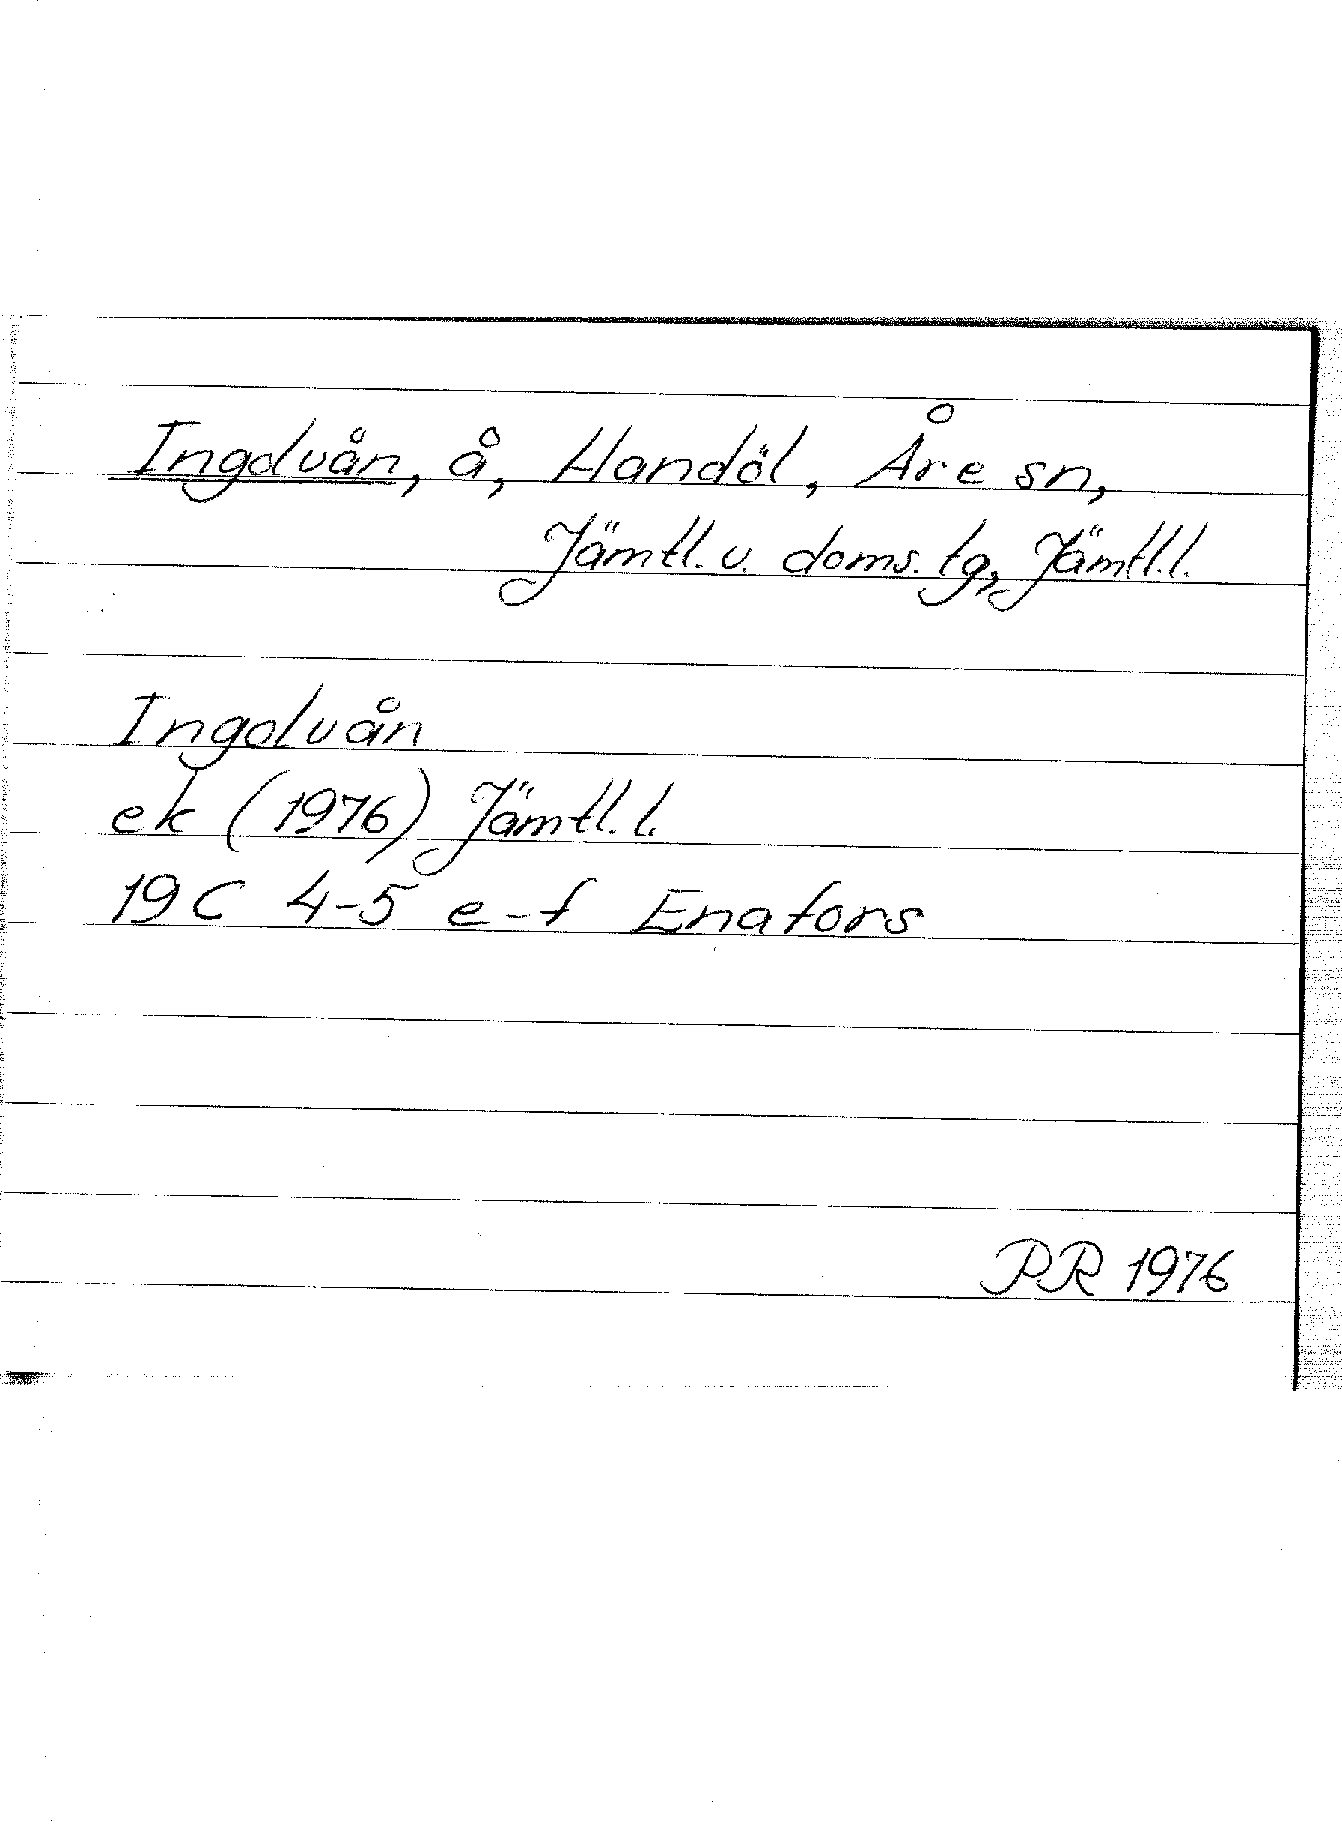 Ingolvån, å, Handöl, Åre sn,
Jämtl. v. doms. tg, Jämtl. l.
Ingolvån
ek (1976) Jämtl. l.
19C 4-5 e-f Enafors
PR 1976